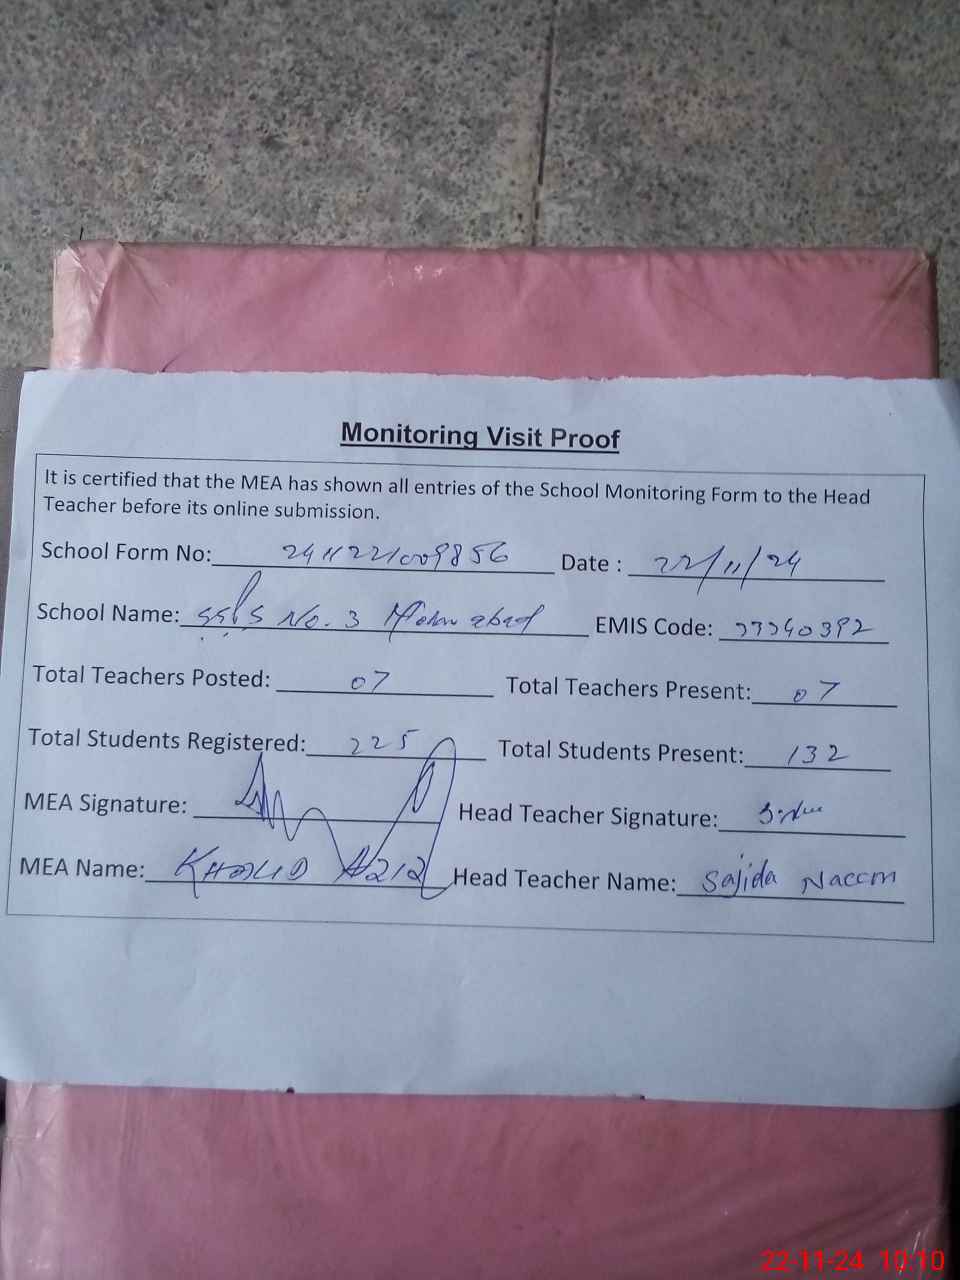 Monitoring Visit Proof
It is certified that the MEA has shown all entries of the School Monitoring Form to the Head
Teacher before its online submission.
School Form No: 2411221009856 Date : 22/11/24
School Name: No. 3 EMIS Code: 33340392
Total Teachers Posted: 07 Total Teachers Present: 07
Total Students Registered: 225 Total Students Present: 132
MEA Signature: Head Teacher Signature:
MEA Name: KHALID Head Teacher Name: Sajida Naeem
22-11-24 10:10